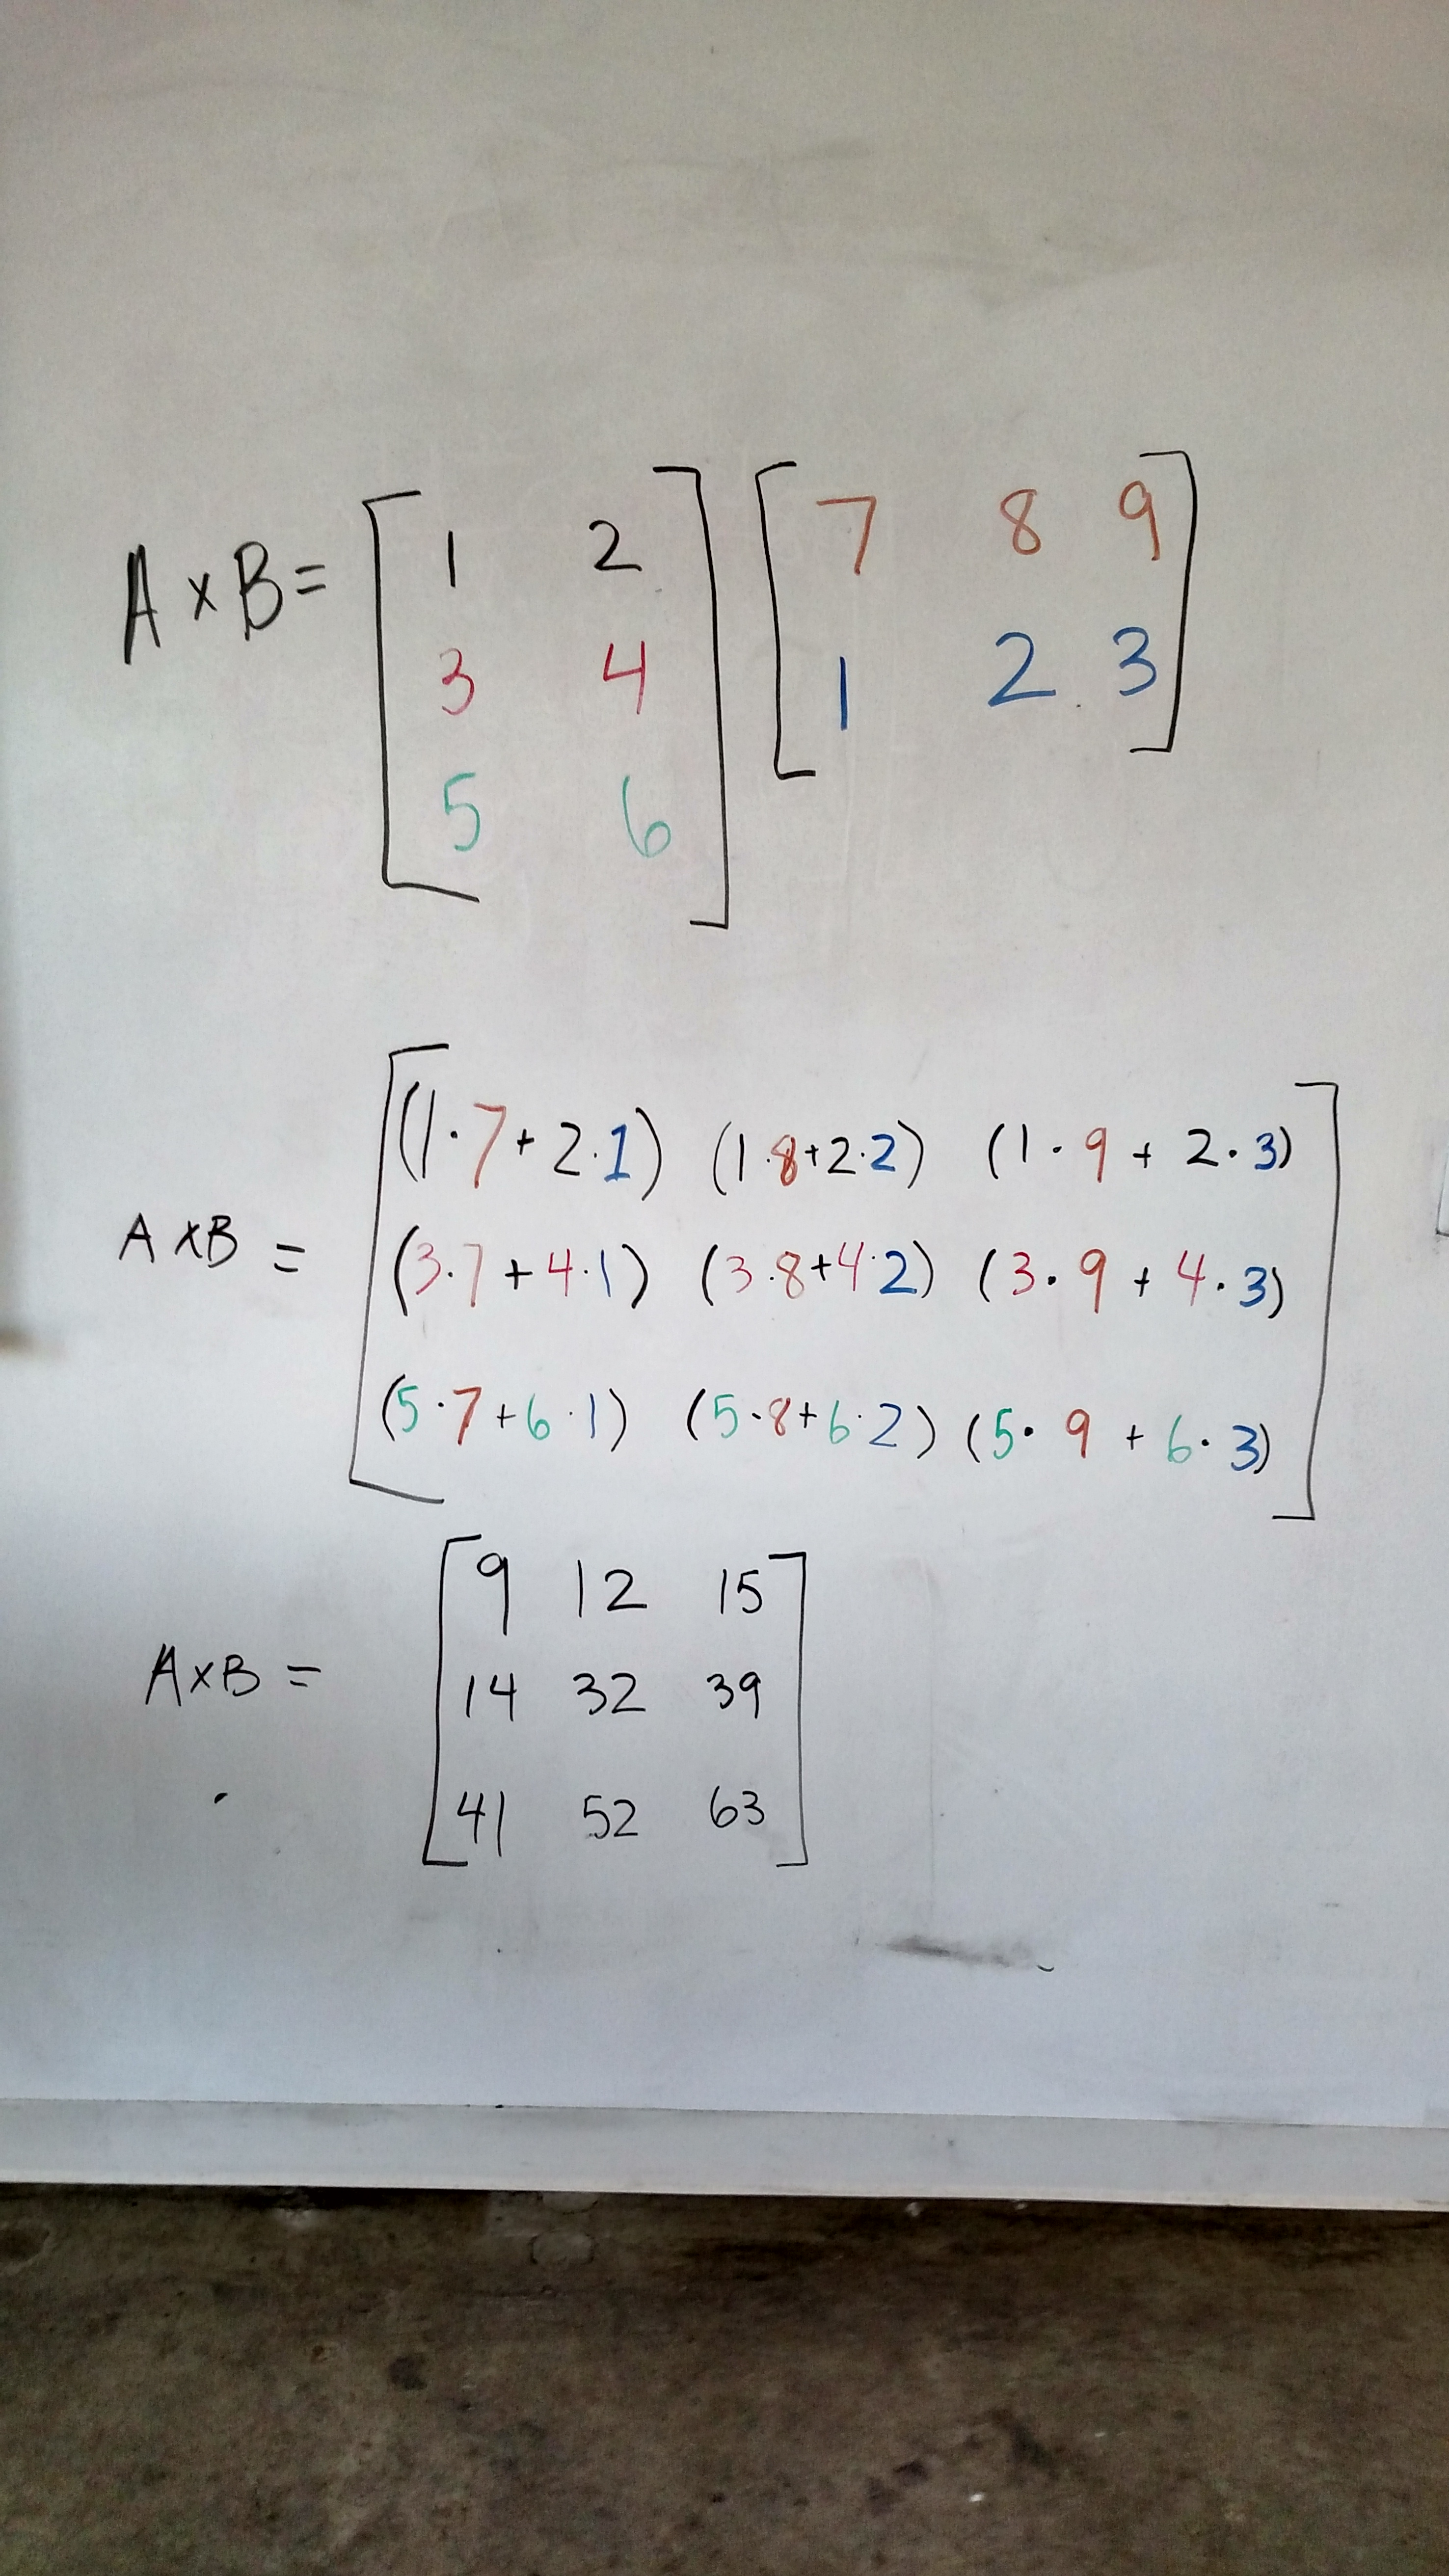 A × B = [ 1 2 ] [ 7 8 9 ]
3 4 1 2 3
5 6
(1·7 + 2·1) (1·8+2·2) (1·9 + 2·3)
A×B = (3·7 + 4·1) (3·8+4·2) (3·9 + 4·3)
(5·7+6·1) (5·8+6·2) (5·9 + 6·3)
9 12 15
A×B = 14 32 39
41 52 63